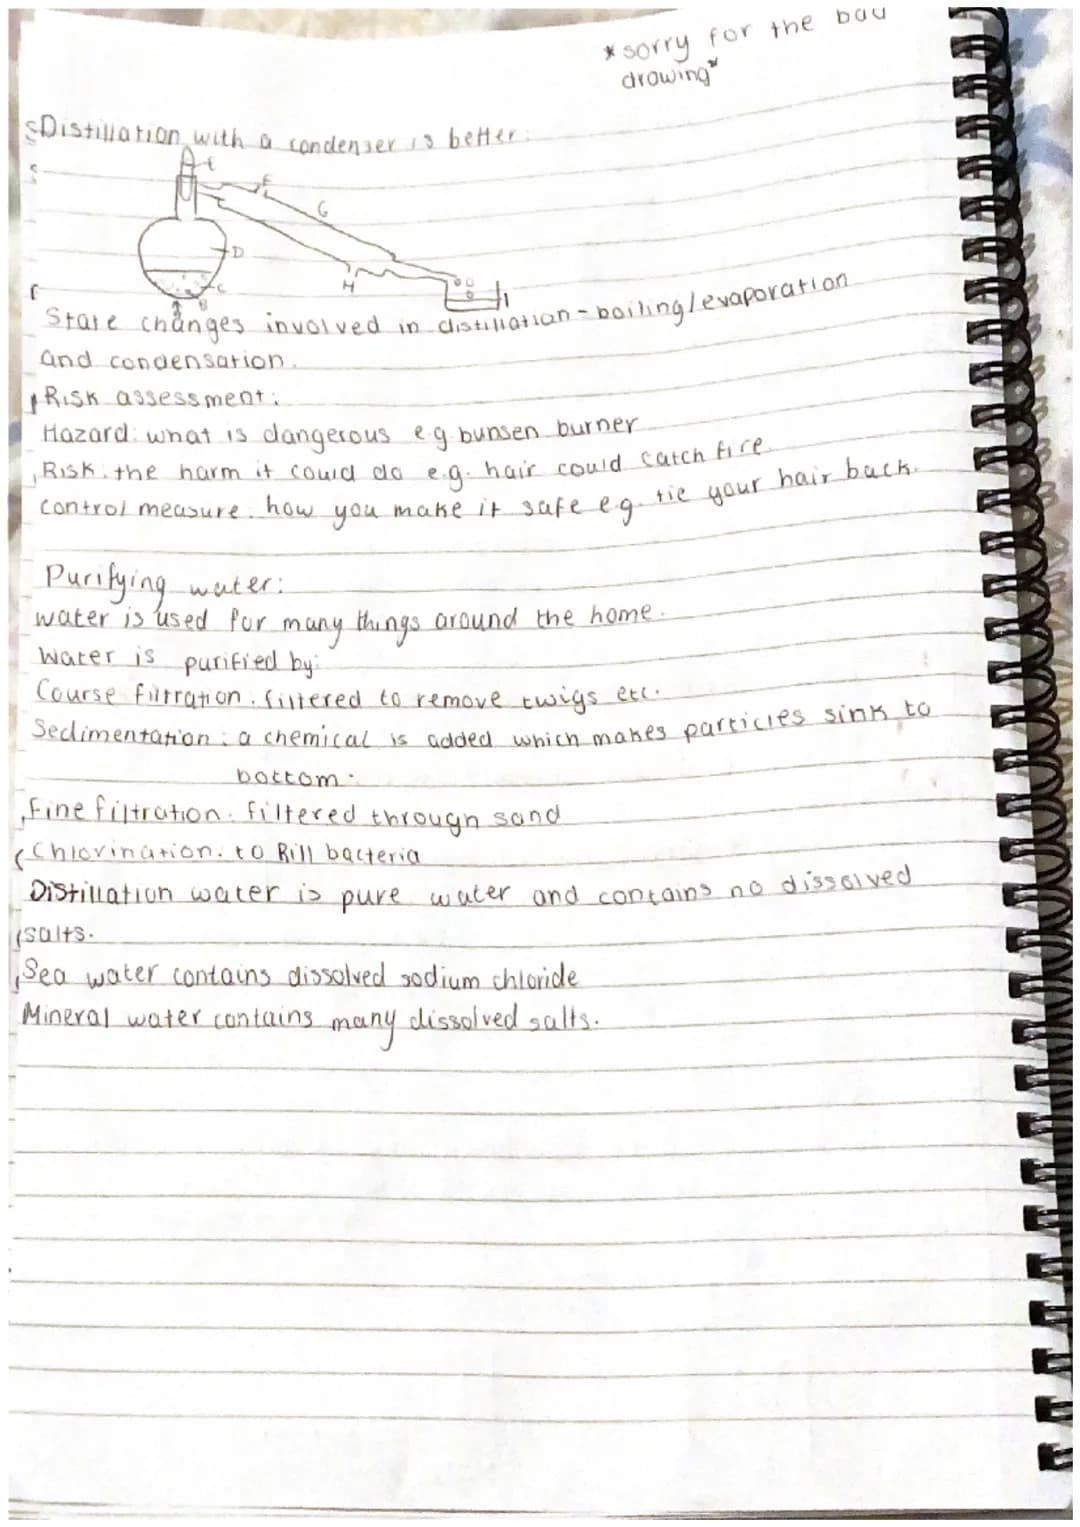 *sorry for the bad
drawing*
Distillation with a condenser is better:
E
F
G
D
C
H
B
I
State changes involved in distillation - boiling/evaporation
and condensation.
Risk assessment:
Hazard: what is dangerous e.g. bunsen burner
Risk: the harm it could do e.g. hair could catch fire
control measure: how you make it safe e.g. tie your hair back.
Purifying water:
water is used for many things around the home.
Water is purified by:
Course filtration: filtered to remove twigs etc.
Sedimentation: a chemical is added which makes particles sink to
bottom.
Fine filtration: filtered through sand
Chlorination: to kill bacteria
Distillation water is pure water and contains no dissolved
salts.
Sea water contains dissolved sodium chloride
Mineral water contains many dissolved salts.